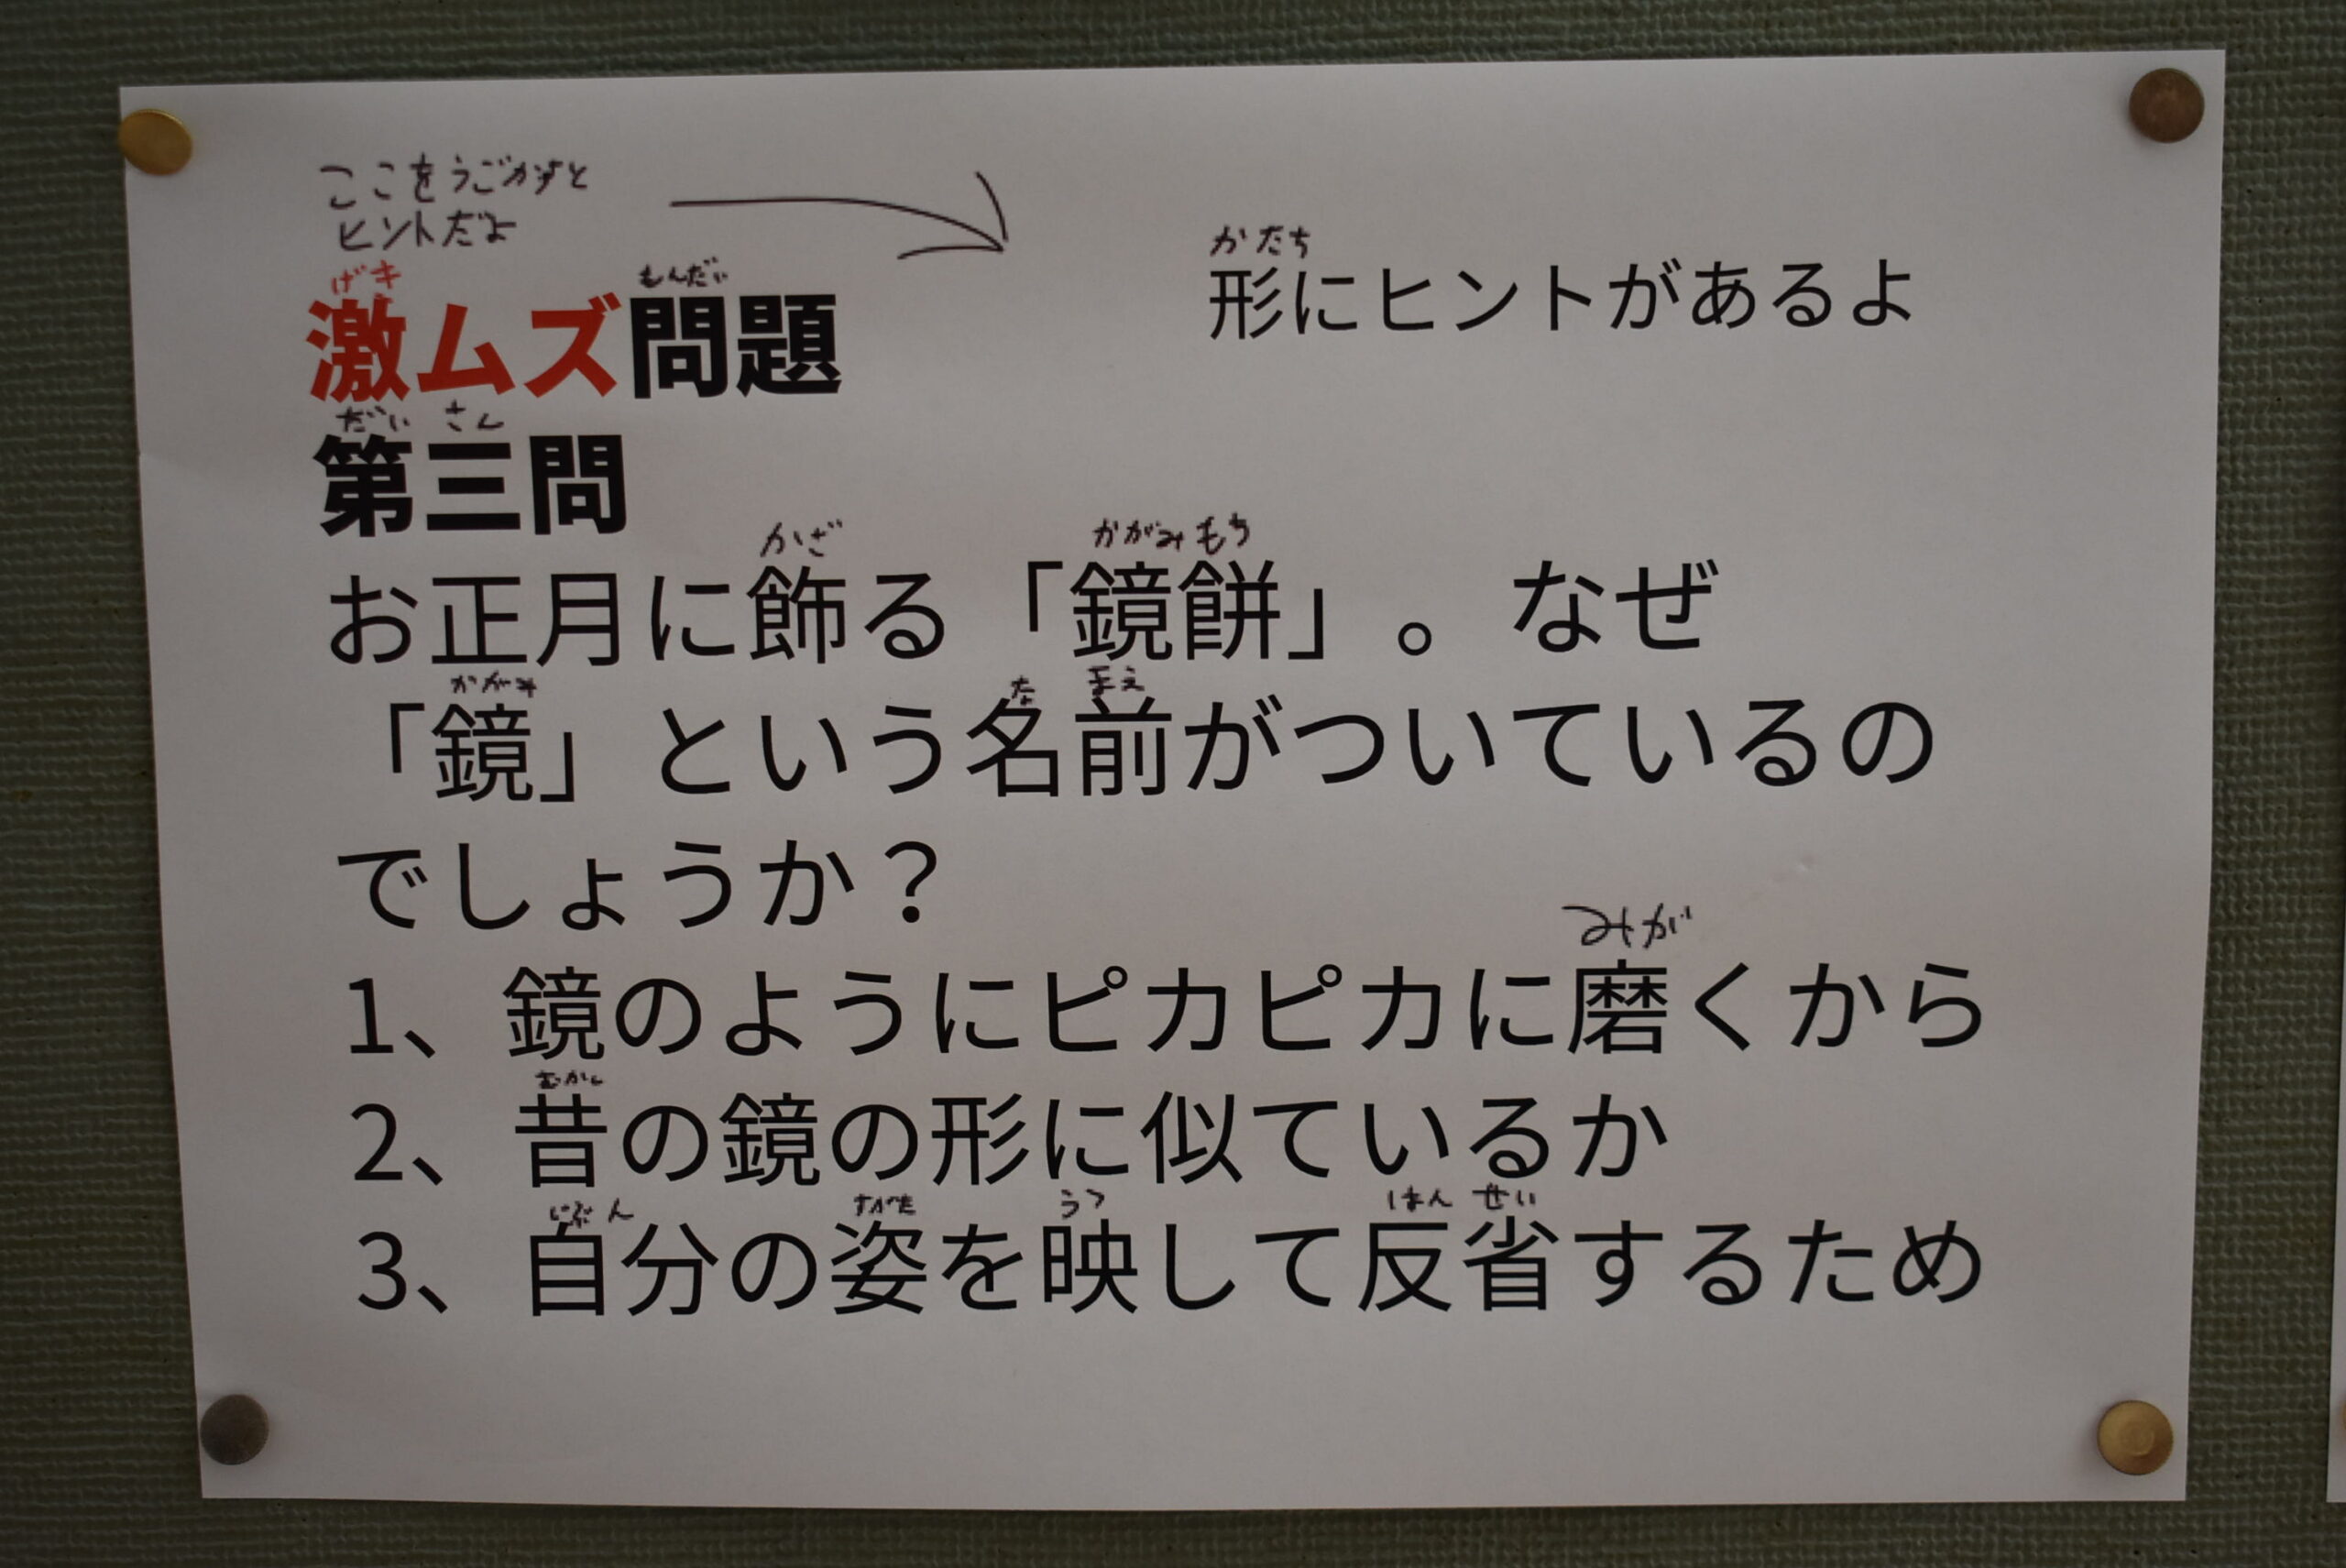 ここをうごかすと
ヒントだよ
かたち
形にヒントがあるよ
げき もんだい
激ムズ問題
だい さん
第三問
かざ かがみもち
お正月に飾る「鏡餅」。なぜ
かがみ な まえ
「鏡」という名前がついているの
でしょうか？
みが
1、鏡のようにピカピカに磨くから
むかし
2、昔の鏡の形に似ているか
じぶん すがた うつ はん せい
3、自分の姿を映して反省するため